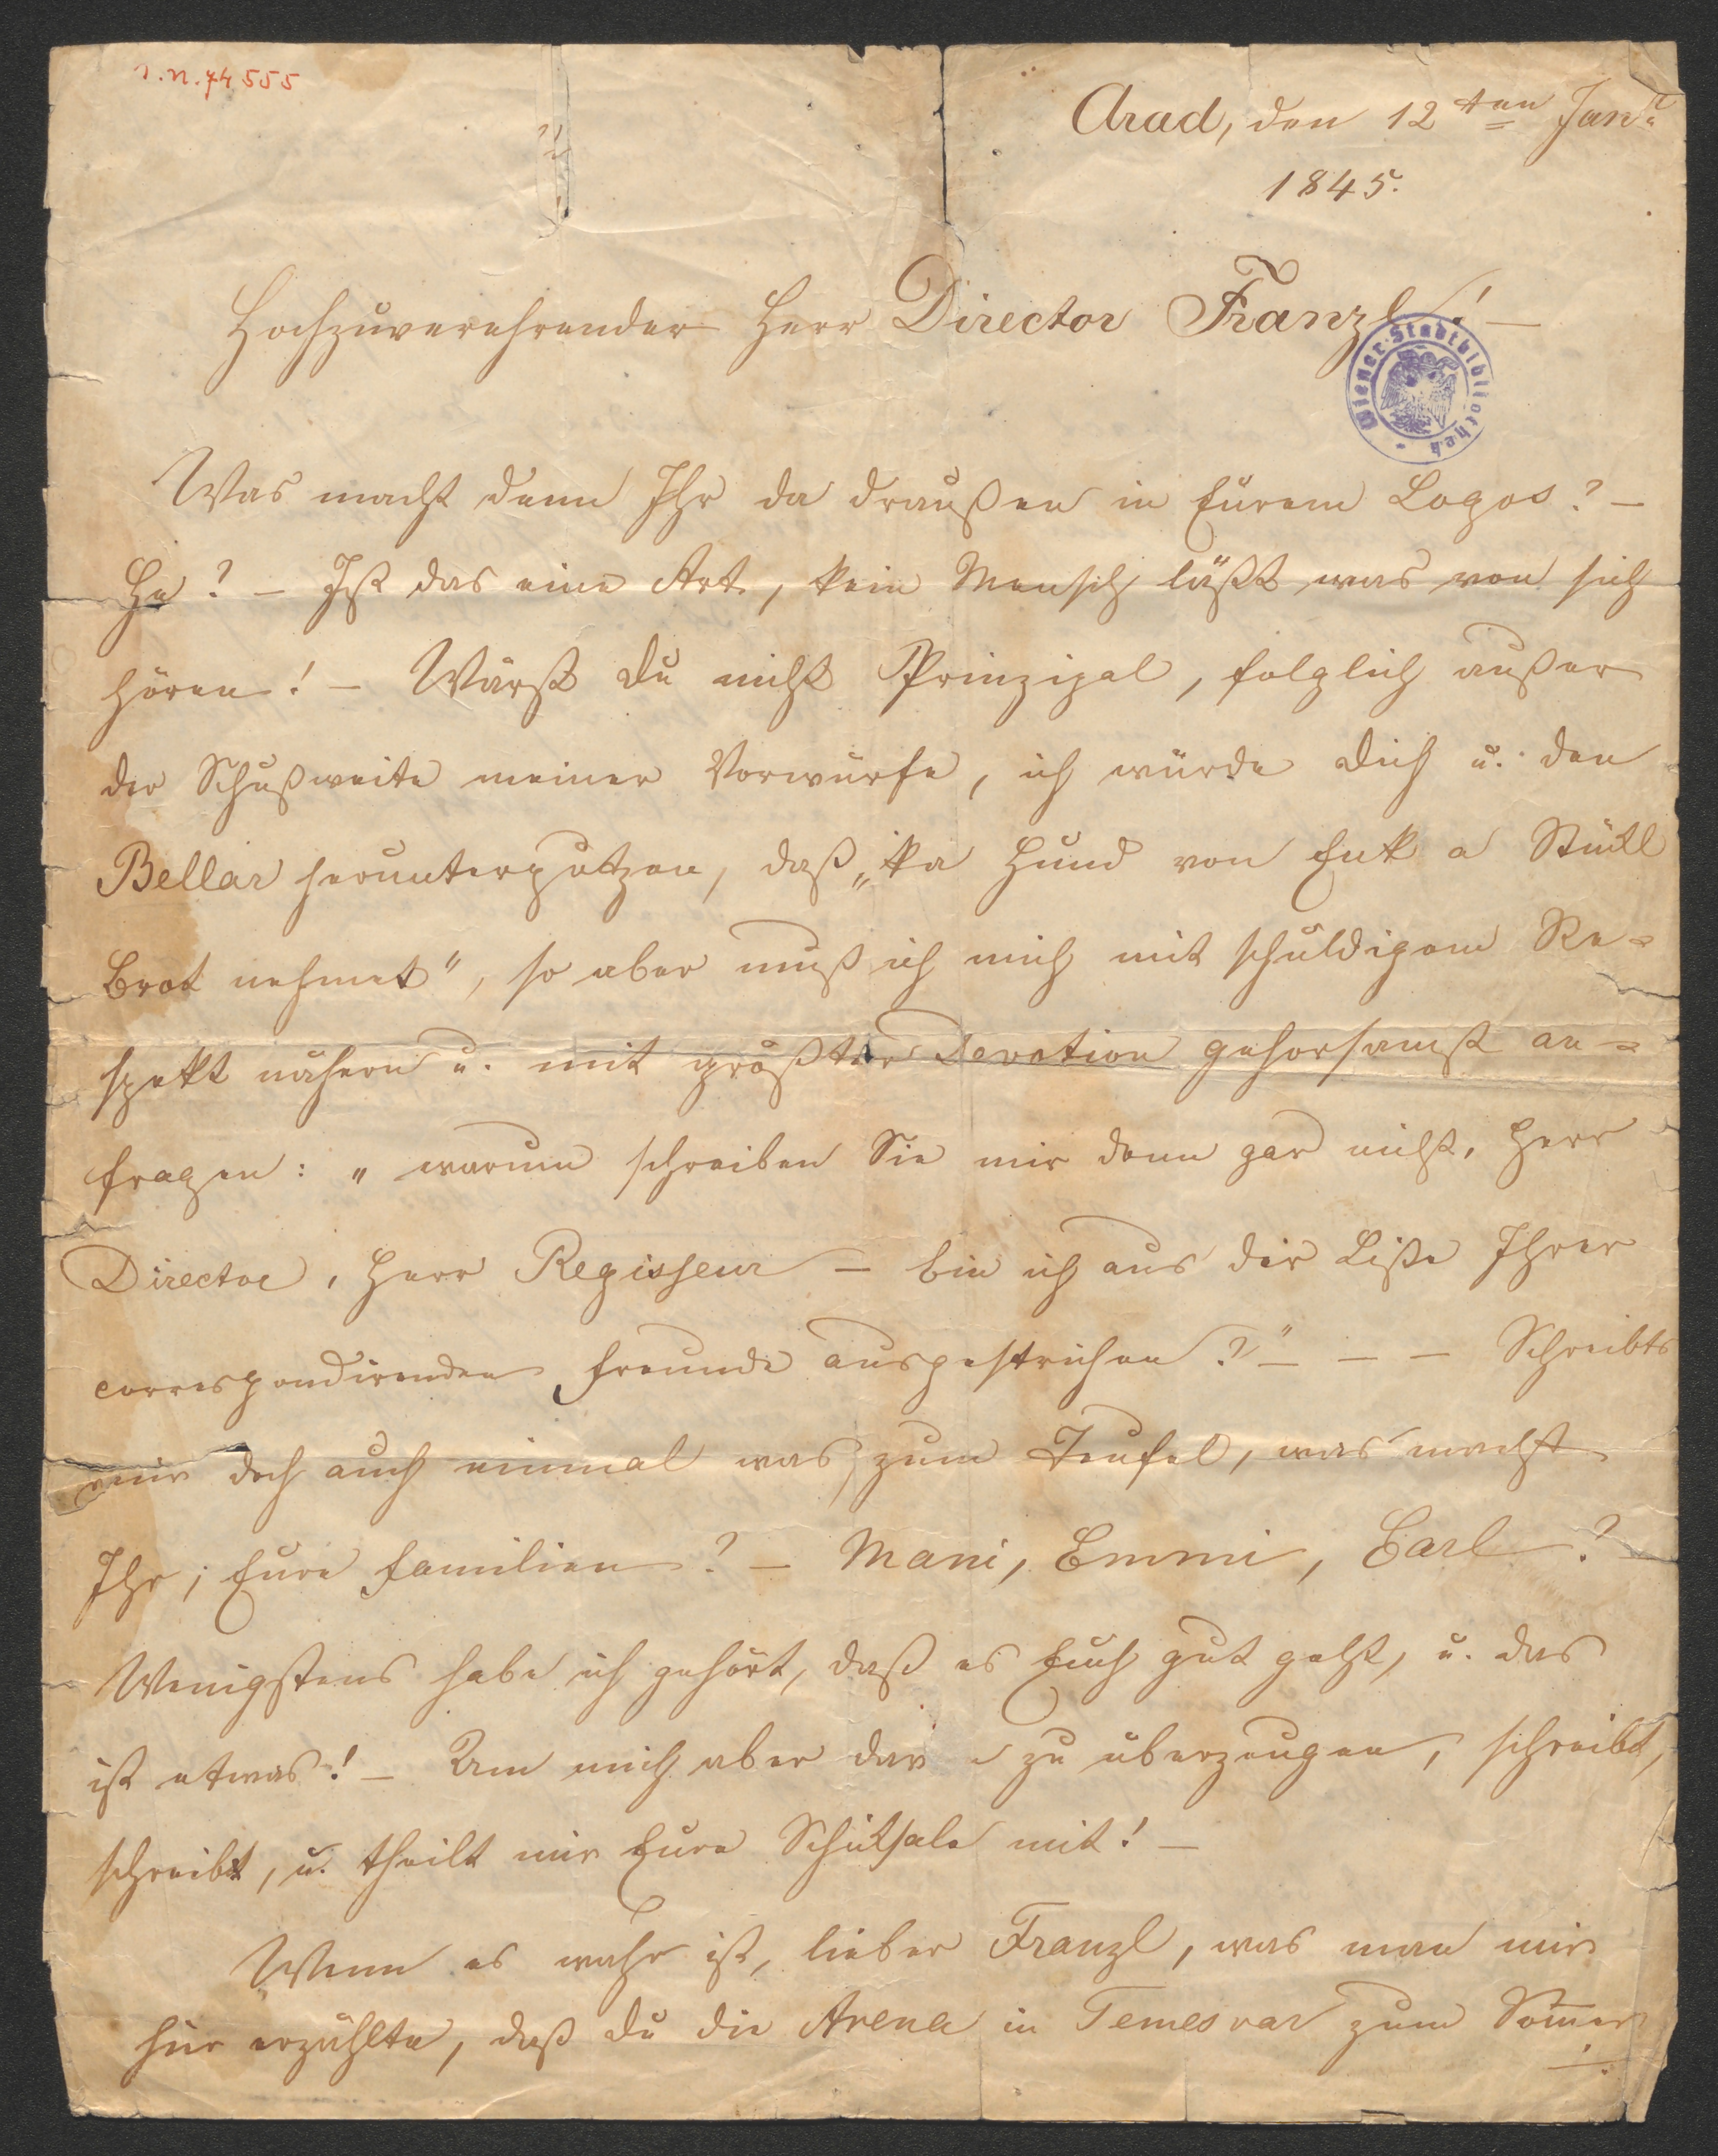 I.N. 74555
Arad, den 12ten Jan.
1845.
Hochzuverehrender Herr Director Franzl! –
Wiener Stadtbibliothek
Was macht denn Ihr da draußen in Eurem Logos? –
He? – Ist das eine Art, kein Mensch läßt was von sich
hören! – Wärst Du nicht Prinzipal, folglich außer
der Schußweite meiner Vorwürfe, ich würde Dich u. den
Bellar herunterputzen, daß „ka Hund von Enk a Stückl
Brot nehmet", so aber muß ich mich mit schuldigem Re-
spekt nähern u. mit größter Devotion gehorsamst an-
fragen: „warum schreiben Sie mir denn gar nicht, Herr
Director, Herr Regisseur – bin ich aus der Liste Ihrer
correspondirenden Freunde ausgestrichen?" – – – Schreibts
mir doch auch einmal was, zum Teufel, was macht
Ihr; Eure Familien? – Mani, Emmi, Carl? –
Wenigstens habe ich gehört, daß es Euch gut geht, u. das
ist etwas! – Um mich aber zu überzeugen, schreibt,
schreibt, u. theilt mir Eure Schicksale mit! –
Wenn es wahr ist, lieber Franzl, was man mir
hier erzählte, daß Du die Arena in Temesvar zum Som̅er